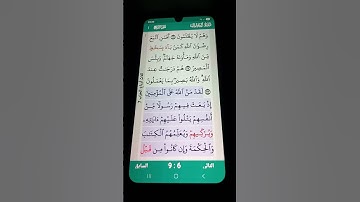 وَهُمْ لَا يُظْلَمُونَ أَفَمَنِ ٱتَّبَعَ
رِضْوَٰنَ ٱللَّهِ كَمَنۢ بَآءَ بِسَخَطٍ
مِّنَ ٱللَّهِ وَمَأْوَىٰهُ جَهَنَّمُ وَبِئْسَ
ٱلْمَصِيرُ هُمْ دَرَجَٰتٌ عِندَ
ٱللَّهِ وَٱللَّهُ بَصِيرٌۢ بِمَا يَعْمَلُونَ
لَقَدْ مَنَّ ٱللَّهُ عَلَى ٱلْمُؤْمِنِينَ
إِذْ بَعَثَ فِيهِمْ رَسُولًا مِّنْ
أَنفُسِهِمْ يَتْلُوا۟ عَلَيْهِمْ ءَايَٰتِهِۦ
وَيُزَكِّيهِمْ وَيُعَلِّمُهُمُ ٱلْكِتَٰبَ
وَٱلْحِكْمَةَ وَإِن كَانُوا۟ مِن قَبْلُ
التالي 9:6 السابق